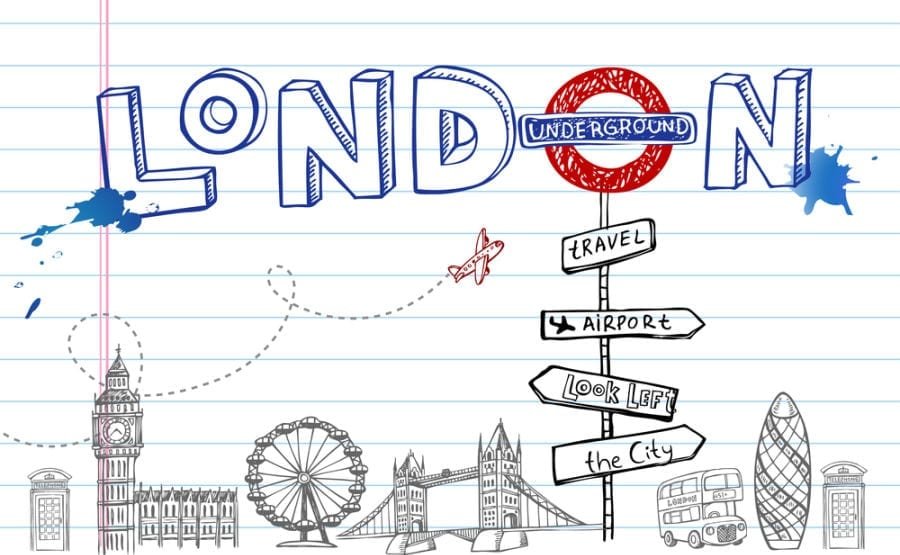 LONDON
UNDERGROUND
tRAVEL
AiRPORt
Look LEFt
the City
TELEPHONE
LONDON
TELEPHONE